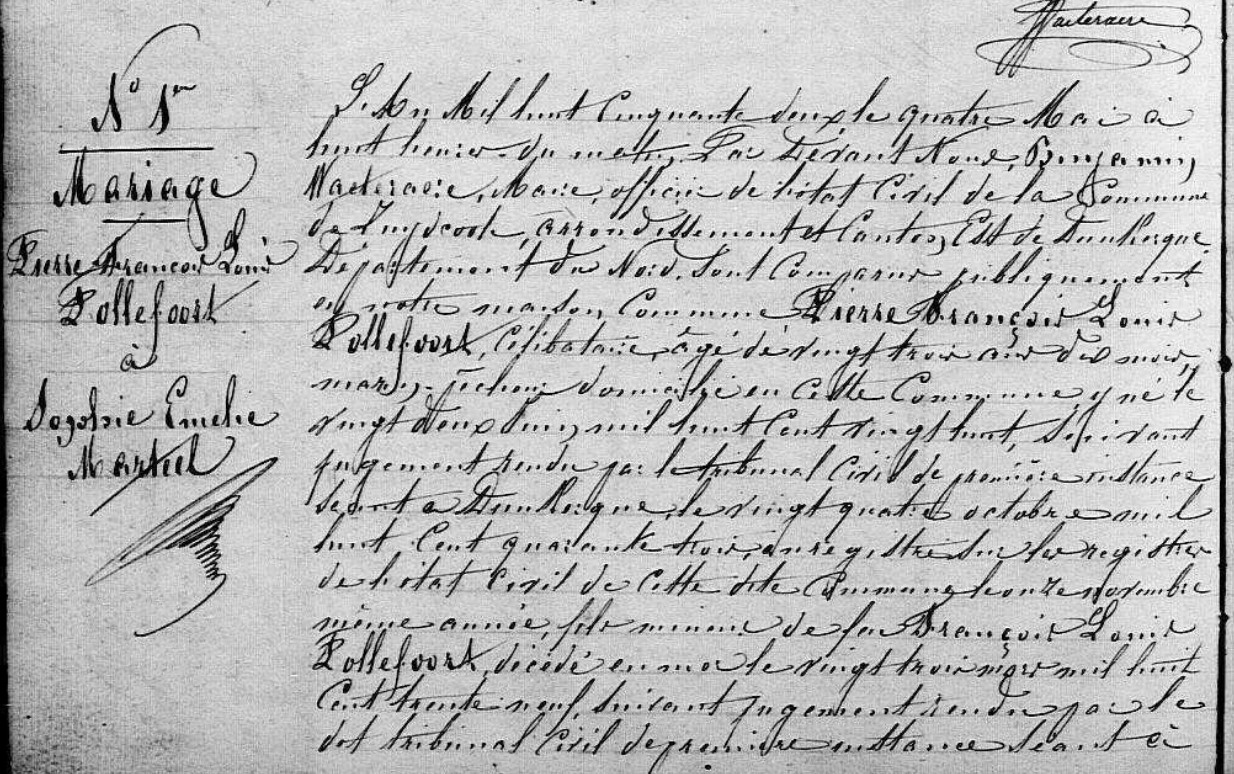 Wacteraere
N° 1er
Mariage
Pierre François Louis
Pollefoort
à
Sophie Emelie
Marteel
L'An Mil huit Cinquante deux le quatre Mai à
huit heures du matin, Par Devant Nous, Benjamin
Wacteraere, Maire, officier de l'état Civil de la Commune
de Zuydcoote, arrondissement et Canton Est de Dunkerque
Département du Nord, Sont Comparus publiquement
en notre maison Commune Pierre François Louis
Pollefoort, Célibataire, âgé de vingt trois ans dix mois,
marin-pêcheur domicilié en Cette Commune, y né le
vingt deux Juin mil huit Cent vingt huit, Suivant
jugement rendu par le tribunal Civil de première instance
Séant à Dunkerque, le vingt quatre octobre mil
huit Cent quarante trois, enregistré sur les registres
de l'état Civil de Cette dite Commune le onze novembre
même année, fils mineur de feu François Louis
Pollefoort, décédé en mer le vingt trois mars mil huit
Cent trente neuf, Suivant jugement rendu par le
dit tribunal Civil de première instance Séant à